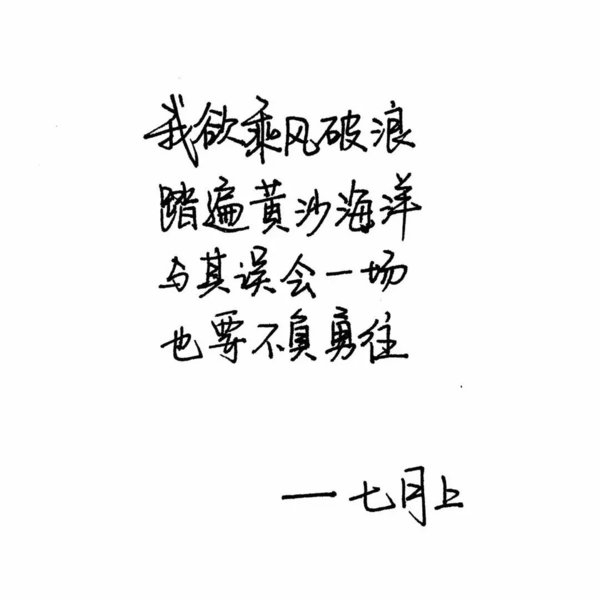 我欲乘风破浪
踏遍黄沙海洋
与其误会一场
也要不负勇往
——七月上